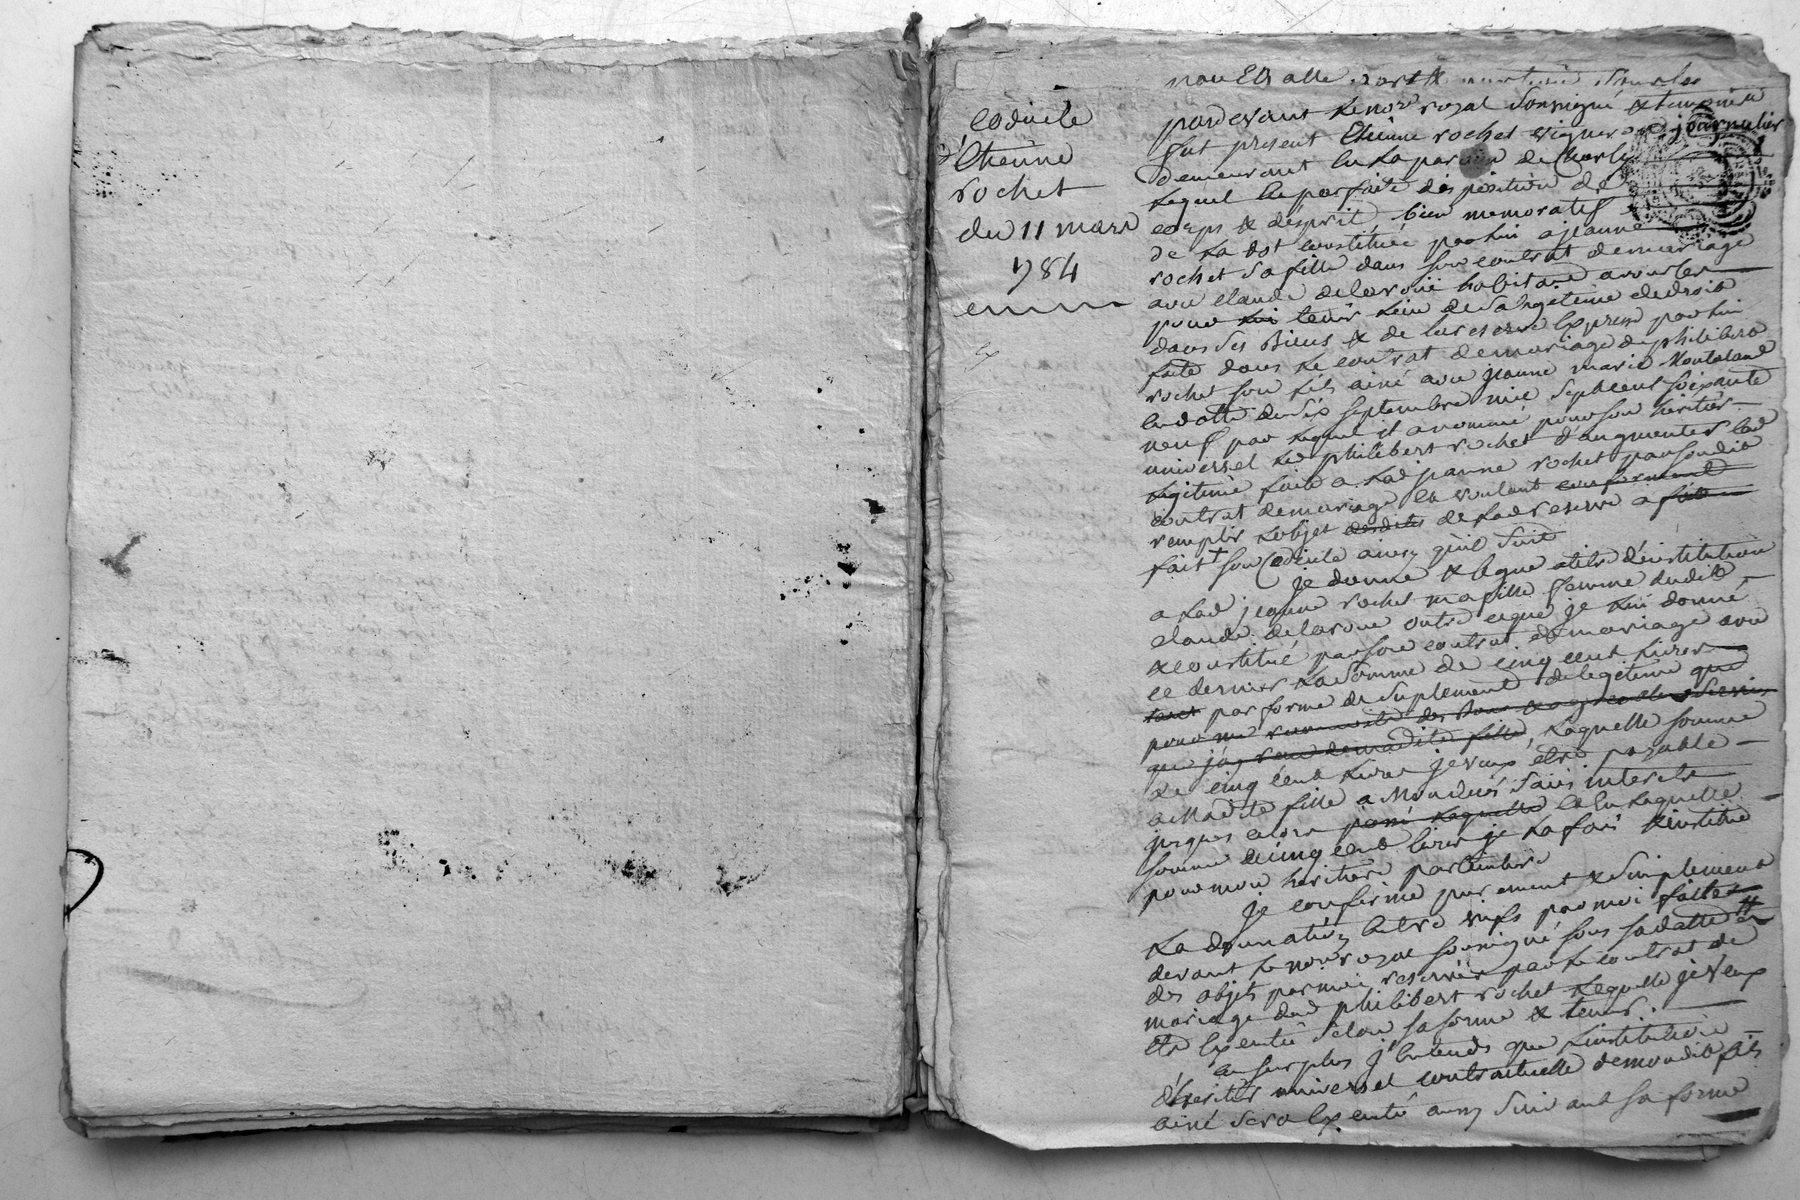 Codicile
d'Etienne
rochet
du 11 mars
1784
pardevant le nore royal soussigné & temoins
fut present Etienne rochet vigneron journalier
demeurant en la paroisse de Charly
lequel en parfaite disposition de
corps & d'esprit, bien memoratif
de la dot constituée par lui a jeanne
rochet sa fille dans son contrat de mariage
avec claude delaroüe habitant
pour lui tenir lieu de sa legitime de droit
dans ses biens & de la reserve expresse par lui
faite dans le contrat de mariage de philibert
rochet son fils ainé avec jeanne marie
en datte du six septembre mil sept cent soixante
neuf par lequel il a nommé pour son heritier
universel led philibert rochet d'augmenter lad
legitime faite a lad jeanne rochet par sondit
contrat de mariage et voulant conformement
remplir l'objet desdites de lad reserve a fait
fait son Codicile ainsy qu'il suit
je donne & legue a titre d'institution
a lad jeanne rochet ma fille femme dudit
claude delaroüe outre ce que je lui donné
& constitué par son contrat de mariage avec
ce dernier la somme de cinq cent livres
par forme de suplement de legitime que
pour me des bons & agreables services
que j'ay de madite fille, laquelle somme
de cinq cent livres je veux etre payable
a Madite fille a Mon deces sans interets
jusques alors laquelle et en laquelle
somme de cinq cent livres je la fais & institue
pour mon heritiere particuliere
je confirme purement & simplement
la donnation entre vifs par moi faite
devant le nore royal soussigné sous sa datte
des objets par moi reservés par le contrat de
mariage dud philibert rochet laquelle je veux
etre executée selon sa forme & teneur.
au surplus j'entends que l'institution
d'heritier universel contractuelle de mondit fils
ainé sera executé aussy suivant sa forme